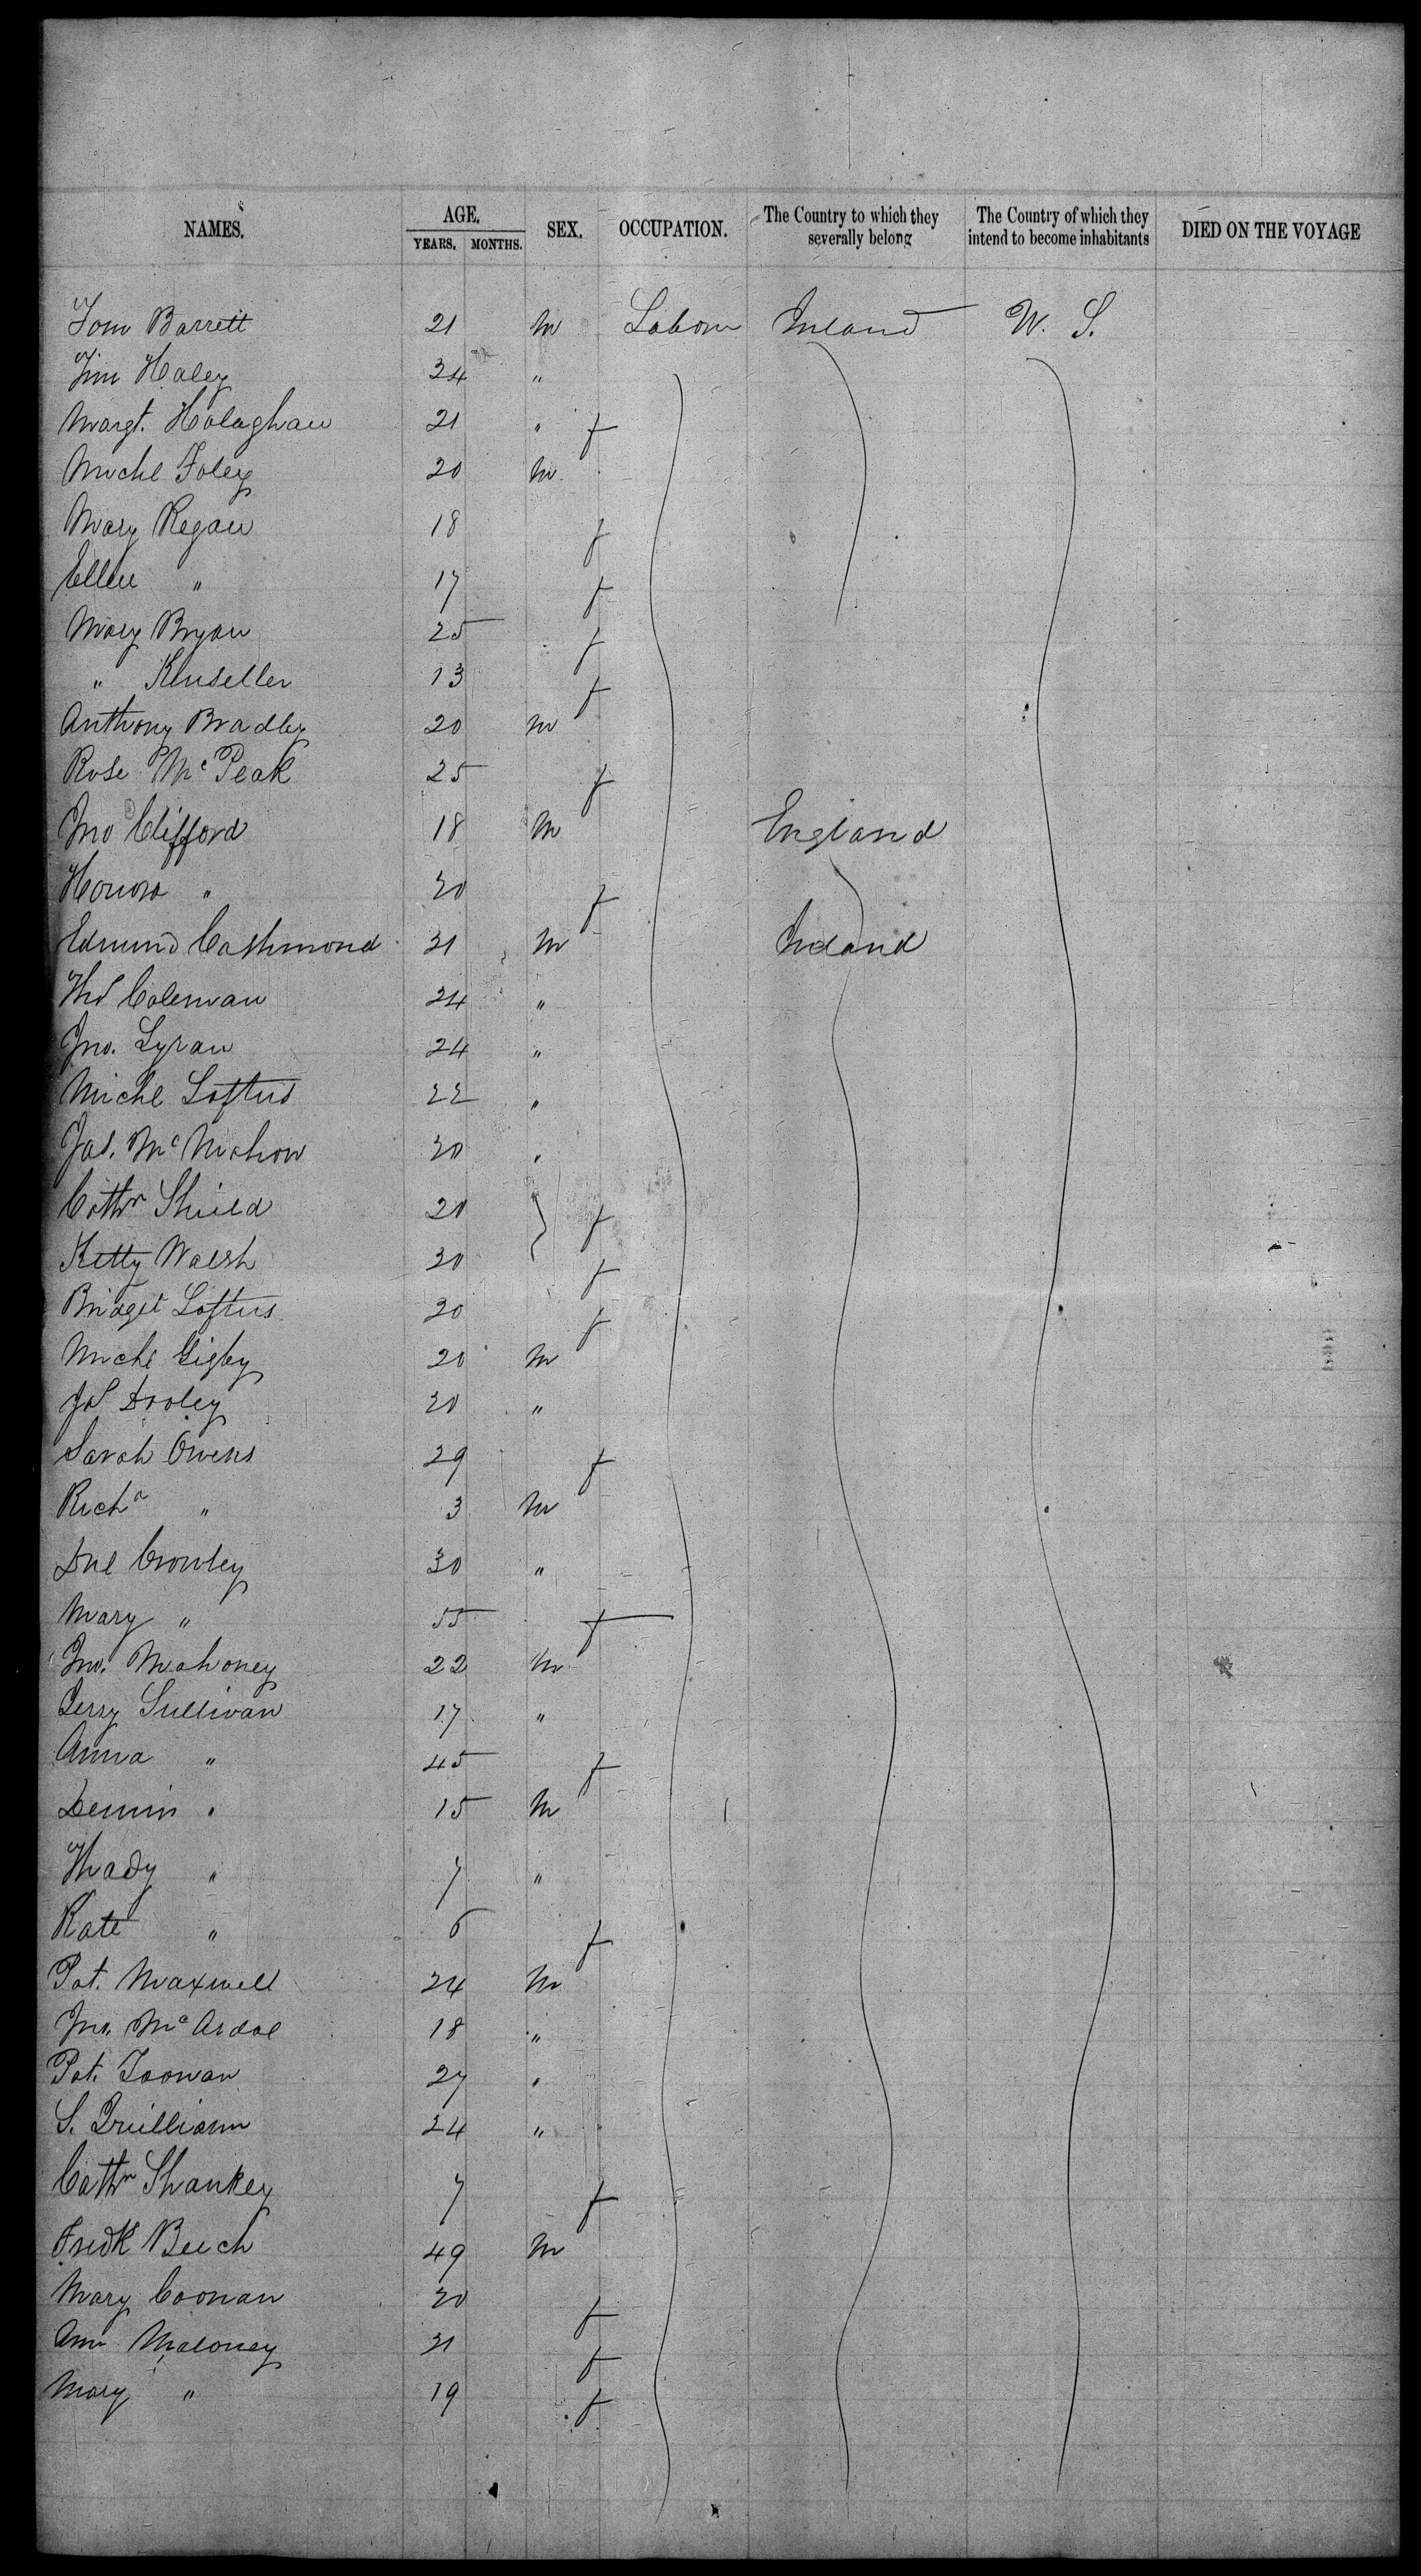 NAMES. AGE. SEX. OCCUPATION. The Country to which they severally belong The Country of which they intend to become inhabitants DIED ON THE VOYAGE
YEARS. MONTHS.
Tom Barrett 21 m Labour Ireland U. S.
Jim Haley 24 "
Margt. Holaghan 21 " f
Michl Foley 20 m
Mary Regan 18 f
Ellen " 17 f
Mary Bryan 25 f
" Kinseller 13 f
Anthony Bradley 20 m
Rose McPeak 25 f
Jno Clifford 18 m England
Honora " 20 f
Edmund Cashmond 21 m Ireland
Thos Coleman 24 "
Jno. Lyran 24 "
Michl Loftus 22 "
Jas. McMahon 20 "
Cathn Shield 20 f
Kitty Walsh 20 f
Bridget Loftus 20 f
Michl Gigby 20 m
Jos Dooley 20 "
Sarah Owens 29 f
Richd " 3 m
Dnl Crowley 30 "
Mary " 55 f
Jno. Mahoney 22 m
Jerry Sullivan 17 "
Anna " 45 f
Dennis " 15 m
Thady " 7 "
Kate " 6 f
Pat. Maxwell 24 m
Jno. McArdle 18 "
Pat. Toonan 27 "
S. Quilliam 24 "
Cathn Shankey 7 f
Fredk Beech 49 m
Mary Coonan 20 f
Ann Maloney 21 f
Mary " 19 f